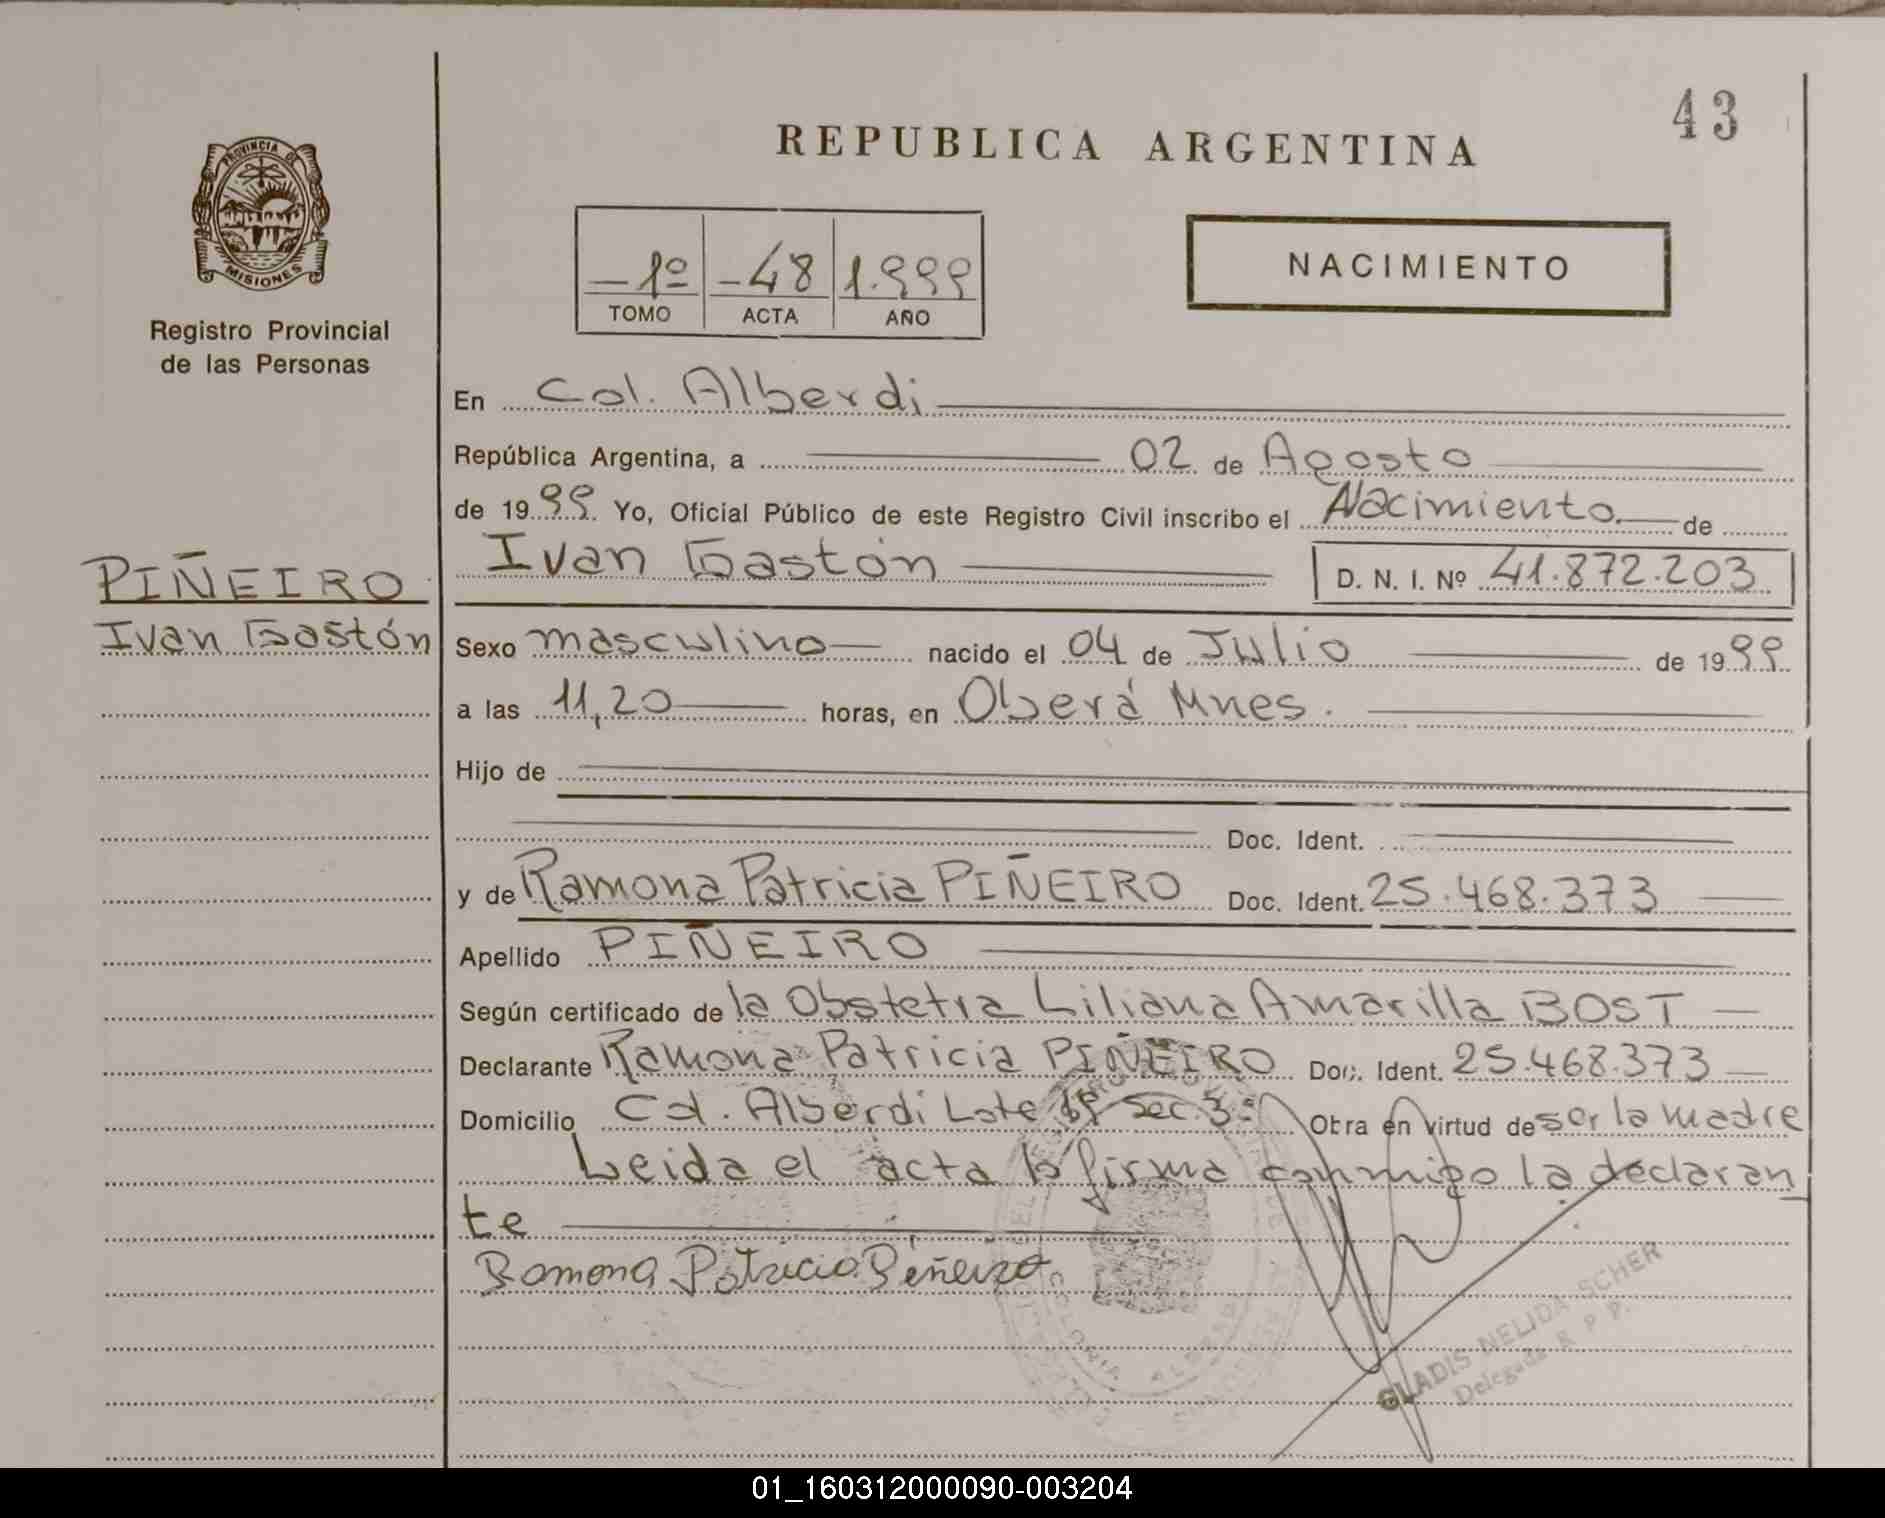 43
REPUBLICA ARGENTINA
PROVINCIA DE
MISIONES
Registro Provincial
de las Personas
- 1º - 48 1.999
TOMO ACTA AÑO
NACIMIENTO
En Col. Alberdi
República Argentina, a 02 de Agosto
de 1999. Yo, Oficial Público de este Registro Civil inscribo el Nacimiento. de
Ivan Gastón D. N. I. Nº 41.872.203
PIÑEIRO
Ivan Gastón
Sexo masculino nacido el 04 de Julio de 1999
a las 11,20 horas, en Oberá Mnes.
Hijo de
Doc. Ident.
y de Ramona Patricia PIÑEIRO Doc. Ident. 25.468.373
Apellido PIÑEIRO
Según certificado de la Obstetra Liliana Amarilla BOST
Declarante Ramona Patricia PIÑEIRO Doc. Ident. 25.468.373
Domicilio Col. Alberdi Lote Sec. 3ª Obra en virtud de ser la madre
Leida el acta la firma conmigo la declaran
te
Ramona Patricia Piñeiro
COLONIA ALBERDI
GLADIS NELIDA SCHER
Delegada R. P. P.
01_160312000090-003204